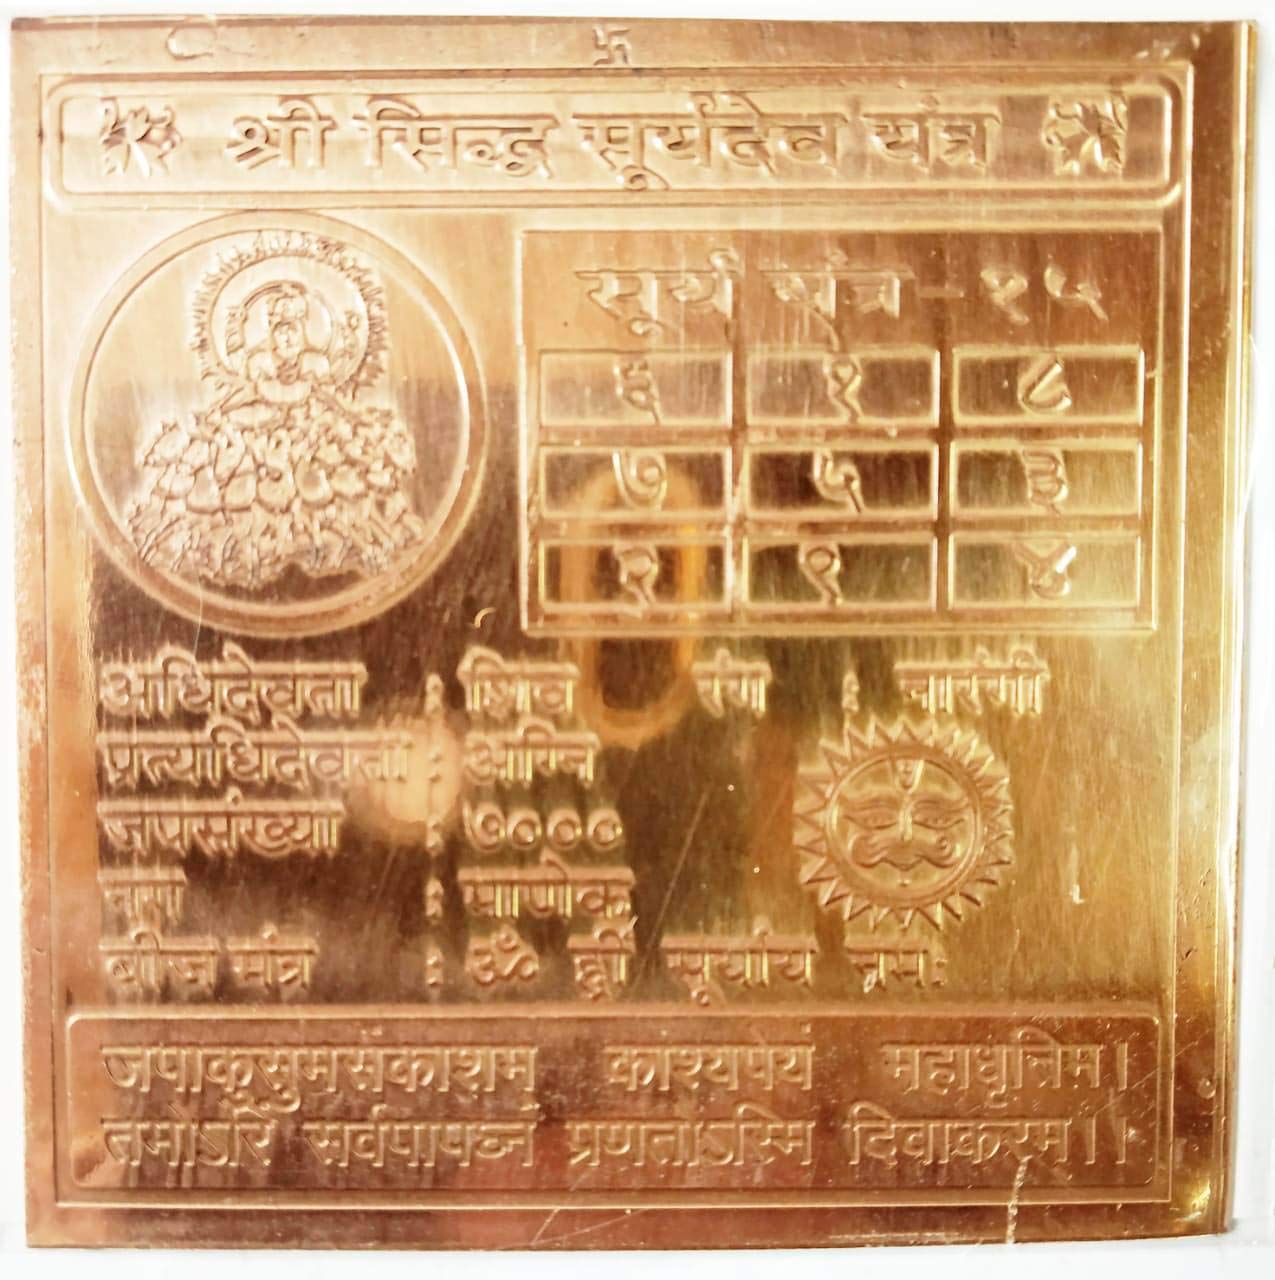 श्री सिद्ध सुर्यदेव यंत्र
सूर्य यंत्र - १५
६ १ ८
७ ५ ३
२ ९ ४
अधिदेवता : शिव रंग : नारंगी
प्रत्याधिदेवता : अग्नि
जपसंख्या : ७०००
नग : माणेक
बीज मंत्र : ॐ ह्रीं सूर्याय नमः
जपाकुसुमसंकाशम् काश्यपेयं महाधृत्तिम।
तमोऽरिं सर्वपापघ्नं प्रणतोऽस्मि दिवाकरम्।।